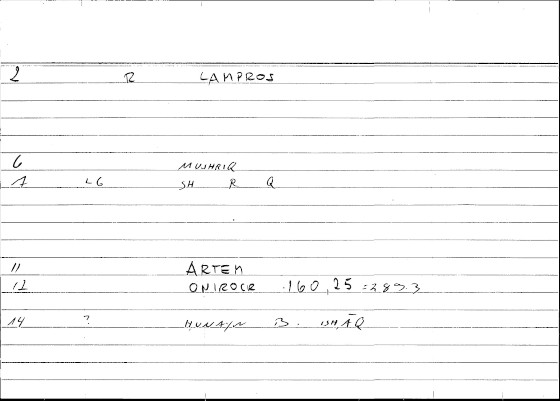 2 R LAMPROS
6 MUSHRIQ
7 LG SH R Q
11 ARTEM
12 ONIROCR 160,25 = 289.3
14 ? HUNAYN B. ISHĀQ